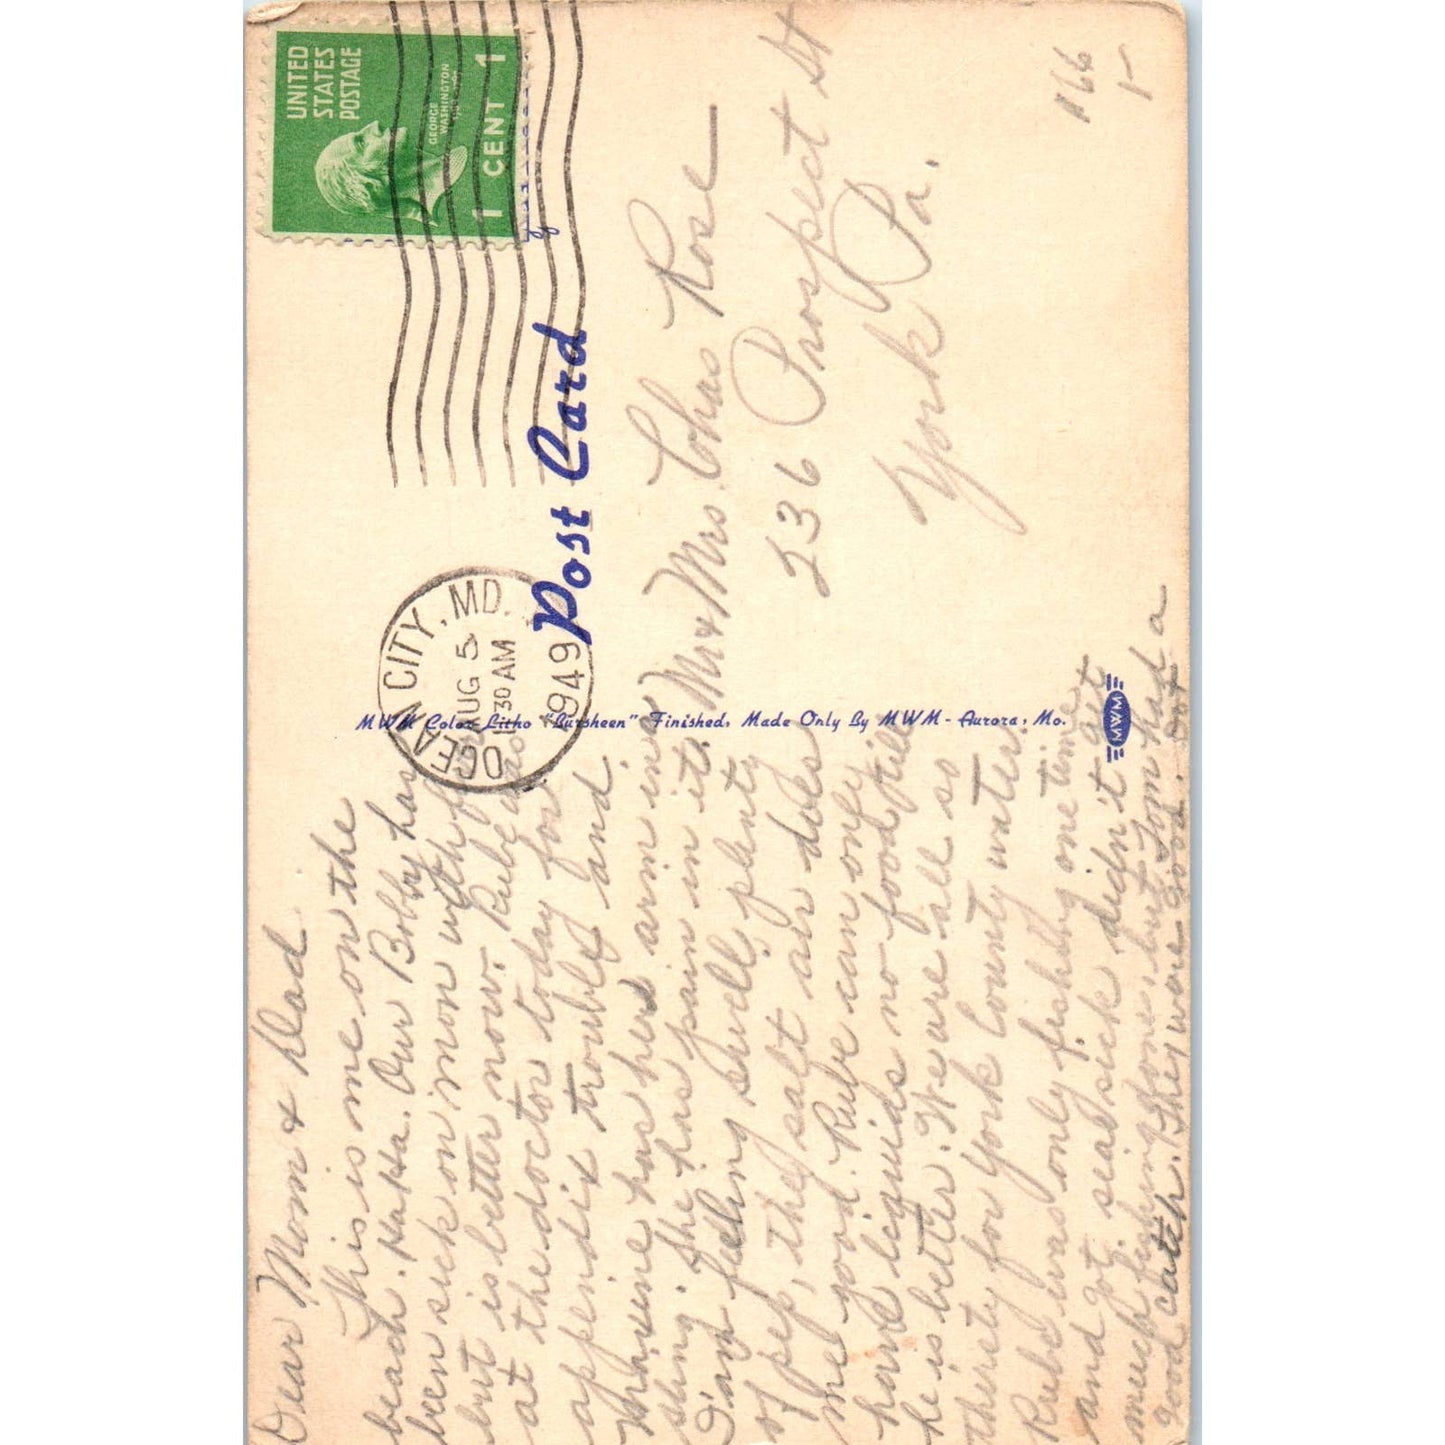 Dear Mom & Dad
This is me on the
beach. HaHa. Our Bobby has
been sick on mon with
but is better now. Rube was
at the doctor today for
appendix trouble and
Maxine has her arm in a
sling. She has pain in it.
I am feeling swell, plenty
of pep, the salt air does
me good. Rube can only
have liquids no food till
he is better. We are all so
thirsty for York County water.
Rube was only fishing one time
and got seasick didn't get
much fishing done, but Tom had a
good catch. They were good.
UNITED
STATES
POSTAGE
GEORGE
WASHINGTON
1789-1797
1 CENT 1
OCEAN CITY, MD.
AUG 5
1 30 AM
1949
Post Card
Mr & Mrs. Chas Rose
236 Prospect St
York Pa.
166
1-
MWM Color-Litho "Bursheen" Finished, Made Only By MWM - Aurora, Mo.
MWM